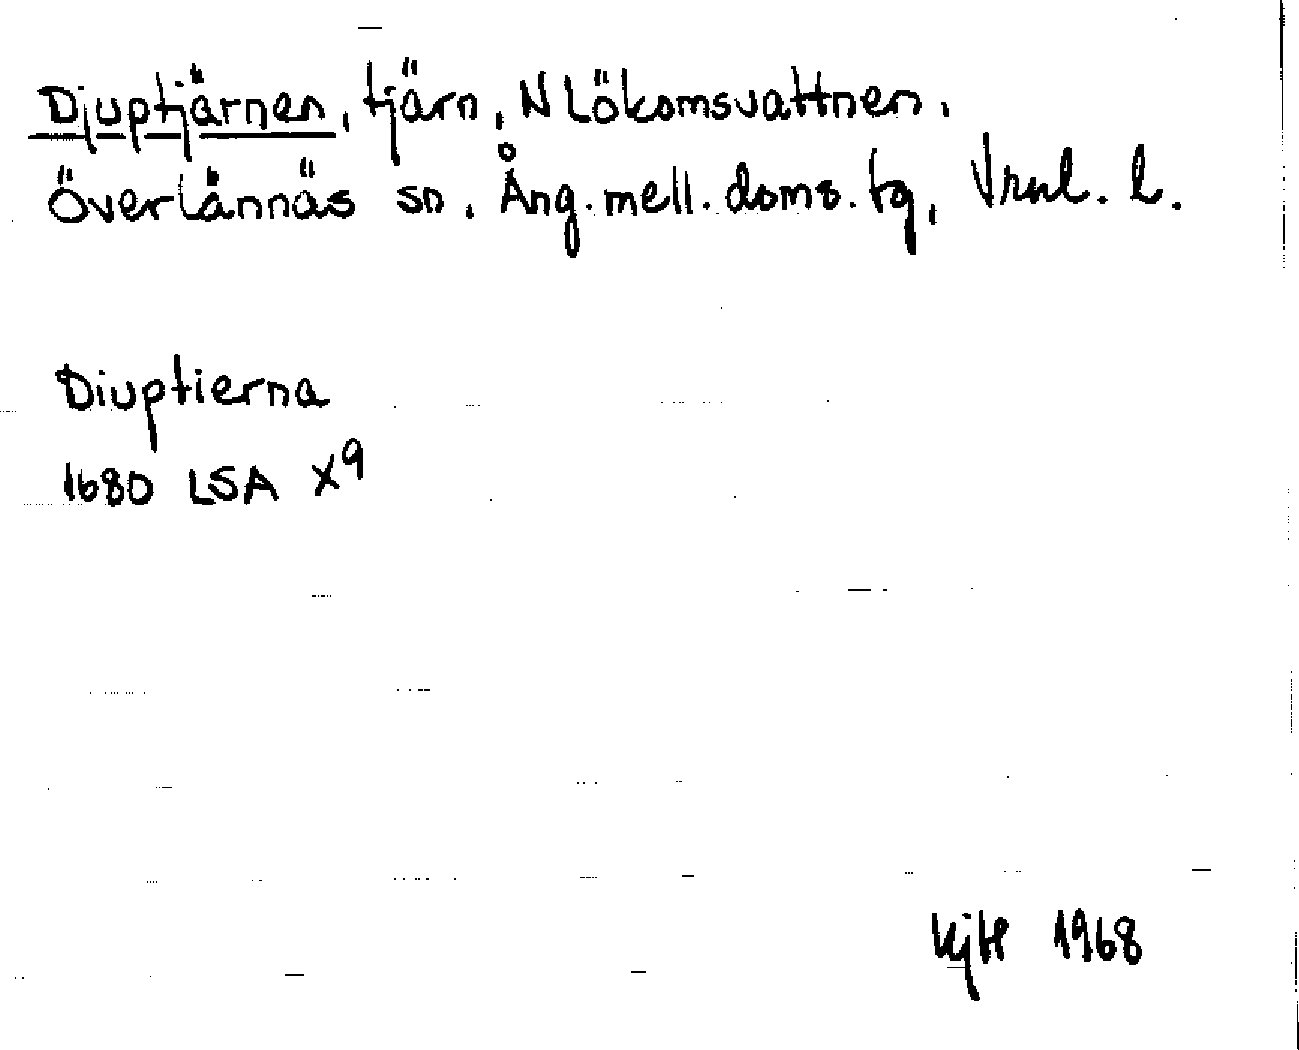 Djuptjärnen, tjärn, N Lökomsvattnen.
Överlännäs sn, Ång. mell. doms. tg, Vrnl. l.
Diuptierna
1680 LSA X9
KjH 1968